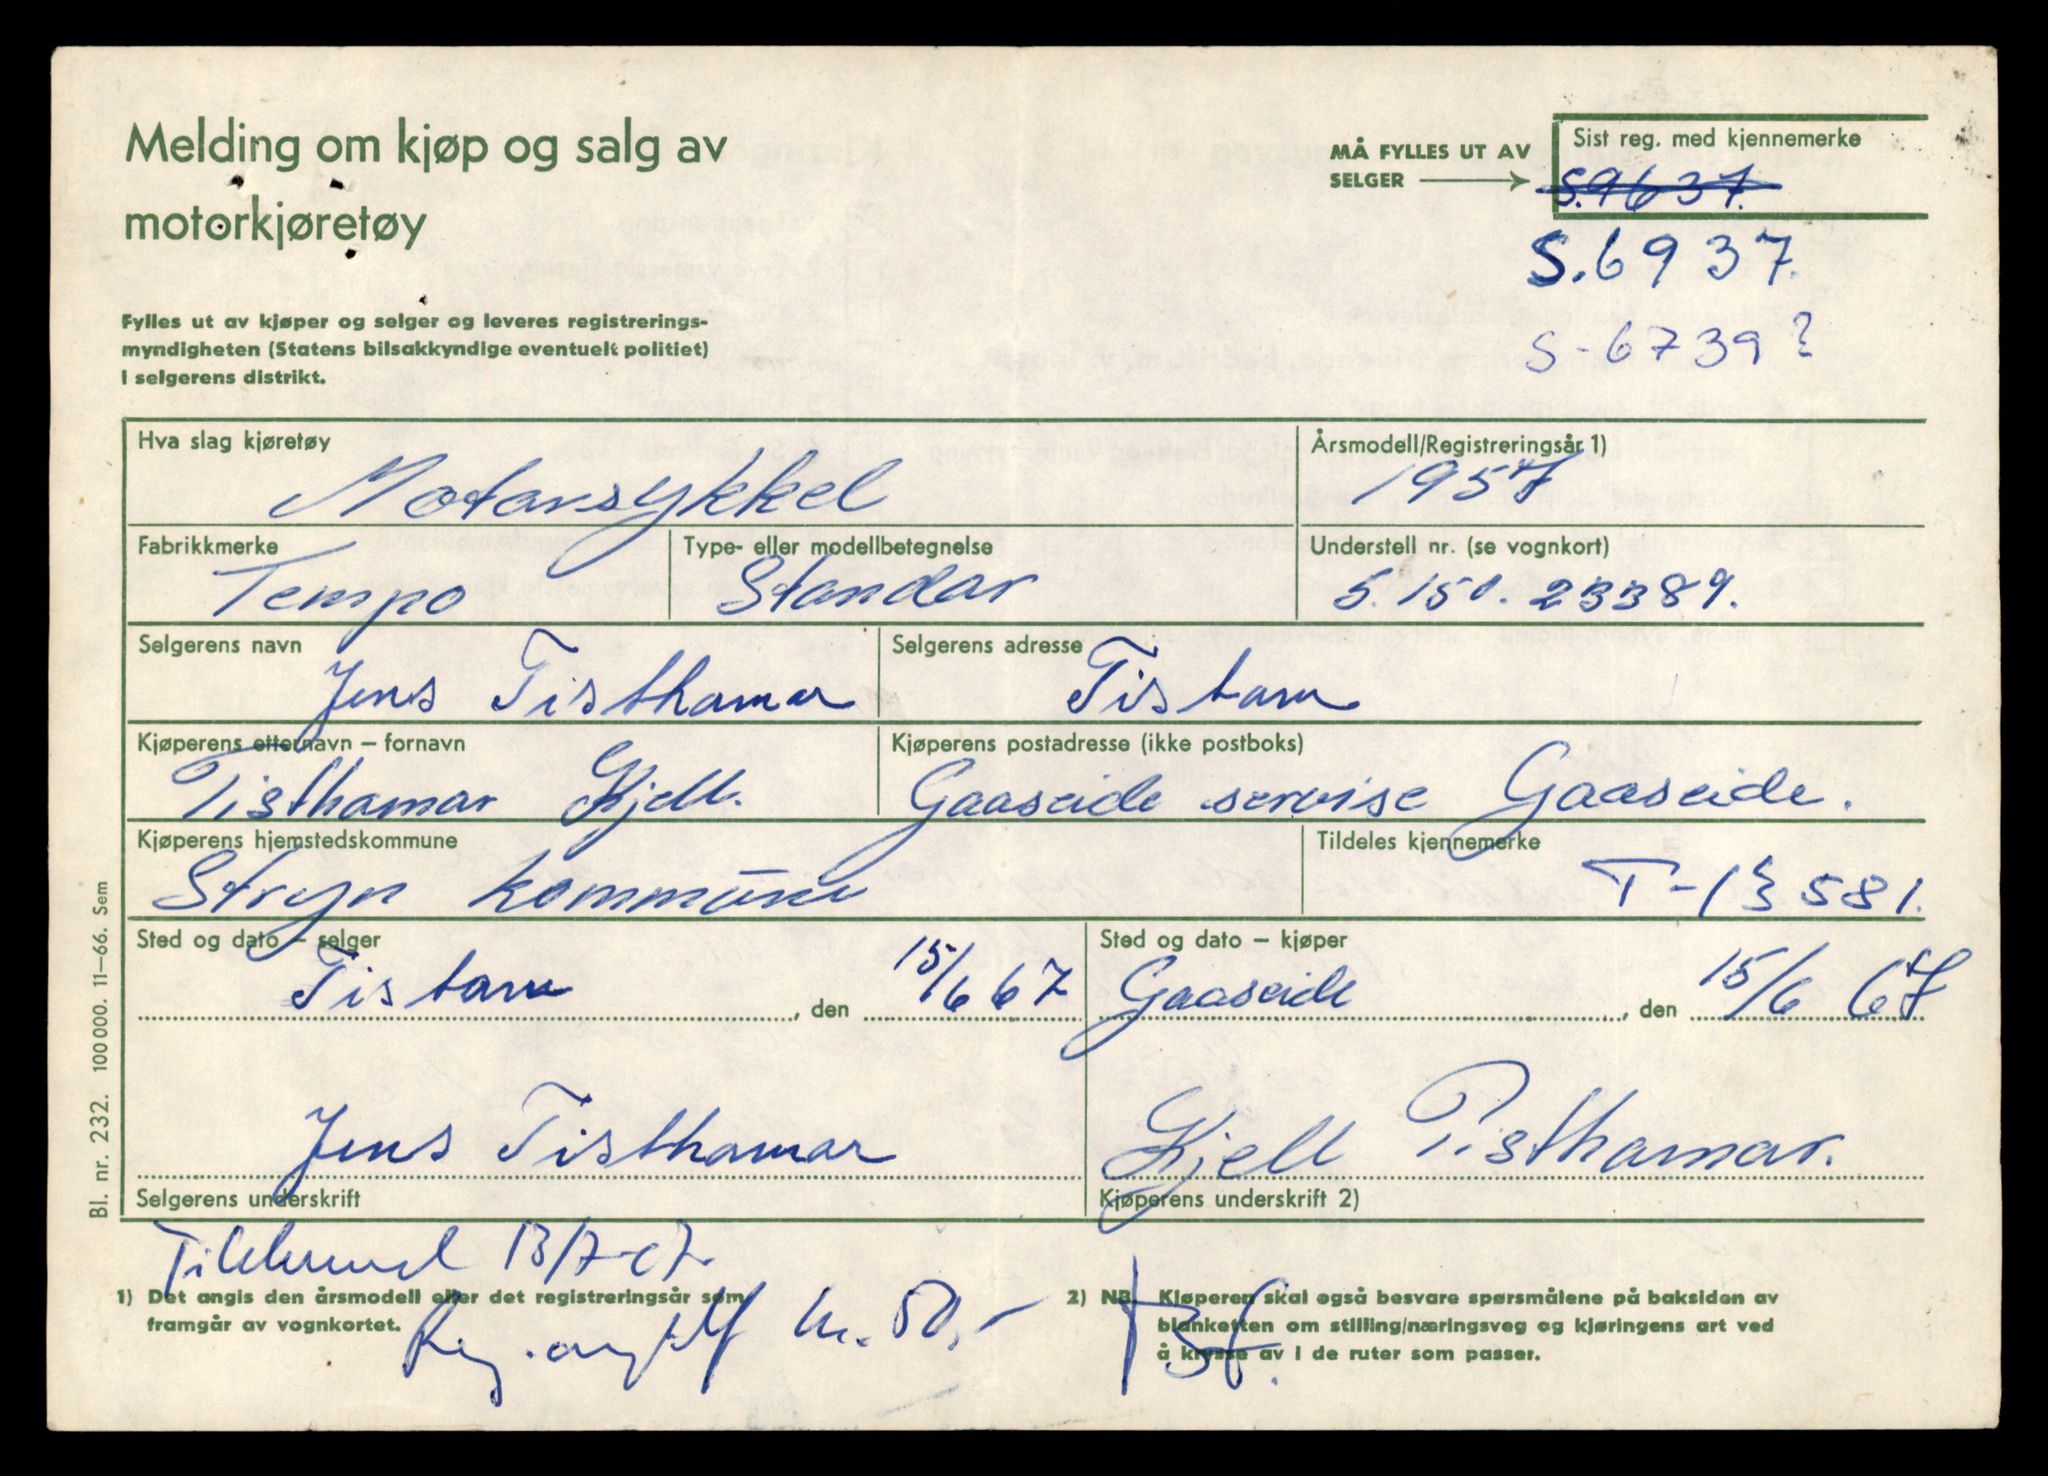 Melding om kjøp og salg av
motorkjøretøy
MÅ FYLLES UT AV
SELGER
Sist reg. med kjennemerke
S.9637.
S.6937.
S-6739?
Fylles ut av kjøper og selger og leveres registrerings-
myndigheten (Statens bilsakkyndige eventuelt politiet)
i selgerens distrikt.
Hva slag kjøretøy
Motorsykkel
Årsmodell/Registreringsår 1)
1957
Fabrikkmerke
Tempo
Type- eller modellbetegnelse
Standar
Understell nr. (se vognkort)
S.150.23389.
Selgerens navn
Jens Tisthamar
Selgerens adresse
Tistam
Kjøperens etternavn – fornavn
Tisthamar Kjell.
Kjøperens postadresse (ikke postboks)
Gaaseide servise Gaaseide.
Kjøperens hjemstedskommune
Stryn kommune
Tildeles kjennemerke
T-13581.
Sted og dato – selger
Tistam, den 15/6 67
Sted og dato – kjøper
Gaaseide, den 15/6 67
Jens Tisthamar
Selgerens underskrift
Kjell Tisthamar.
Kjøperens underskrift 2)
13/7-67.
1) Det angis den årsmodell eller det registreringsår som
framgår av vognkortet.
Reg.avgift kr. 50,-
2) NB. Kjøperen skal også besvare spørsmålene på baksiden av
blanketten om stilling/næringsveg og kjøringens art ved
å krysse av i de ruter som passer.
Bl. nr. 232. 100000. 11–66. Sem